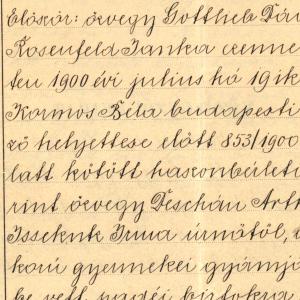 Először: özvegy Gottlieb
Rosenfeld Janka
ten 1900 évi julius hó 19 ik
Kormos Béla budapesti
ző helyettese előtt 853/1900
latt kötött haszonbérleti
rint özvegy Deschán
Issekutz Irma úrnőtől,
korú gyermekei gyámja
be vett padéi birtokra